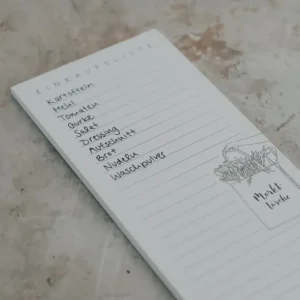 EINKAUFSLISTE
Kartoffeln
Mehl
Tomaten
Gurke
Salat
Dressing
Aufschnitt
Brot
Nudeln
Waschpulver
Markt
tasche